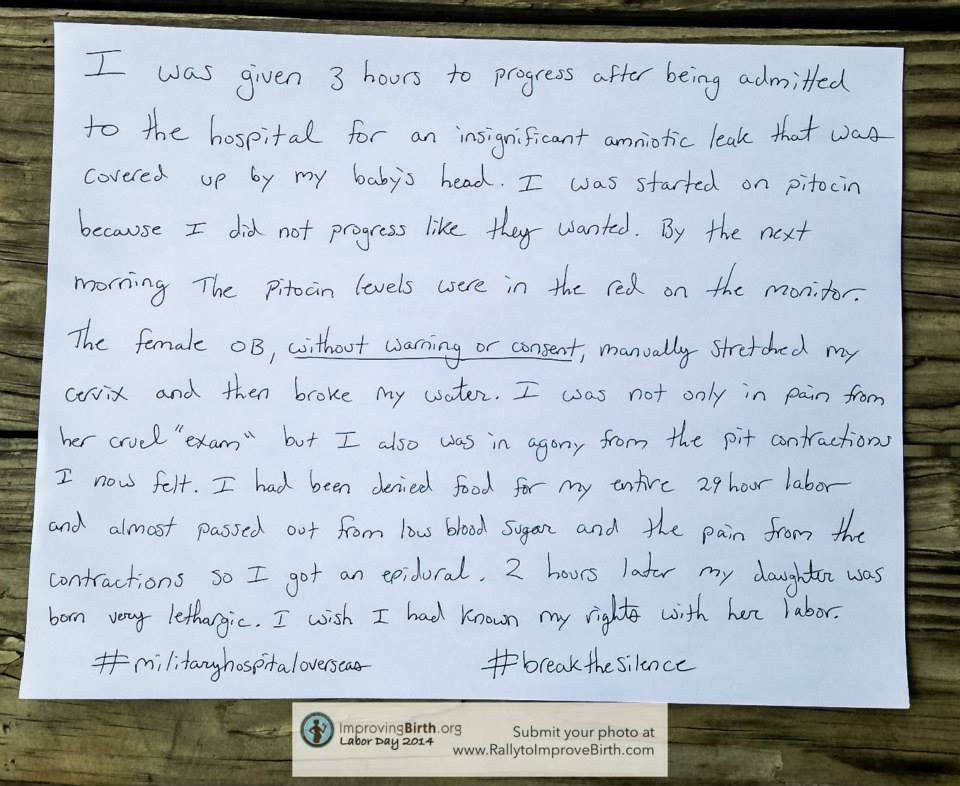 I was given 3 hours to progress after being admitted
to the hospital for an insignificant amniotic leak that was
covered up by my baby's head. I was started on pitocin
because I did not progress like they wanted. By the next
morning The Pitocin levels were in the red on the monitor.
The female OB, without warning or consent, manually stretched my
cervix and then broke my water. I was not only in pain from
her cruel "exam" but I also was in agony from the pit contractions
I now felt. I had been denied food for my entire 29 hour labor
and almost passed out from low blood sugar and the pain from the
contractions so I got an epidural. 2 hours later my daughter was
born very lethargic. I wish I had known my rights with her labor.
#militaryhospitaloverseas #breakthesilence
ImprovingBirth.org
Labor Day 2014
Submit your photo at
www.RallytoImproveBirth.com